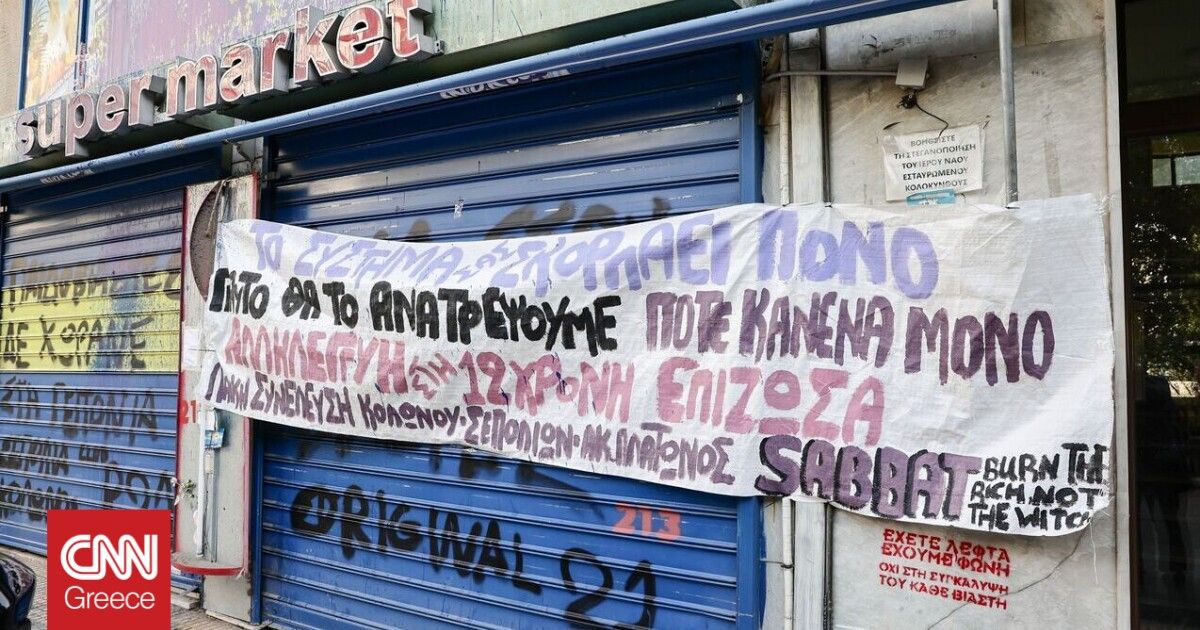 super market
ΒΟΗΘΕΙΣΤΕ
ΤΗ ΣΤΕΓΑΝΟΠΟΙΗΣΗ
ΤΟΥ ΙΕΡΟΥ ΝΑΟΥ
ΕΣΤΑΥΡΩΜΕΝΟΥ
ΚΟΛΟΚΥΝΘΟΥΣ
ΤΟ ΣΥΣΤΗΜΑ ΣΚΟΡΠΑΕΙ ΠΟΝΟ
ΓΙ'ΑΥΤΟ ΘΑ ΤΟ ΑΝΑΤΡΕΨΟΥΜΕ ΠΟΤΕ ΚΑΝΕΝΑ ΜΟΝΟ
ΑΛΛΗΛΕΓΓΥΗ ΣΤΗ 12ΧΡΟΝΗ ΕΠΙΖΩΣΑ
ΛΑΪΚΗ ΣΥΝΕΛΕΥΣΗ ΚΟΛΩΝΟΥ·ΣΕΠΟΛΙΩΝ·ΑΚ.ΠΛΑΤΩΝΟΣ
SABBAT
BURN THE
RICH NOT
THE WITCH
ΔΕ ΧΩΡΑΜΕ
ΣΤΑ ΣΕΠΟΛΙΑ
21
213
ORIGINAL 21
ΕΧΕΤΕ ΛΕΦΤΑ
ΕΧΟΥΜΕ ΦΩΝΗ
ΟΧΙ ΣΤΗ ΣΥΓΚΑΛΥΨΗ
ΤΟΥ ΚΑΘΕ ΒΙΑΣΤΗ
CNN
Greece